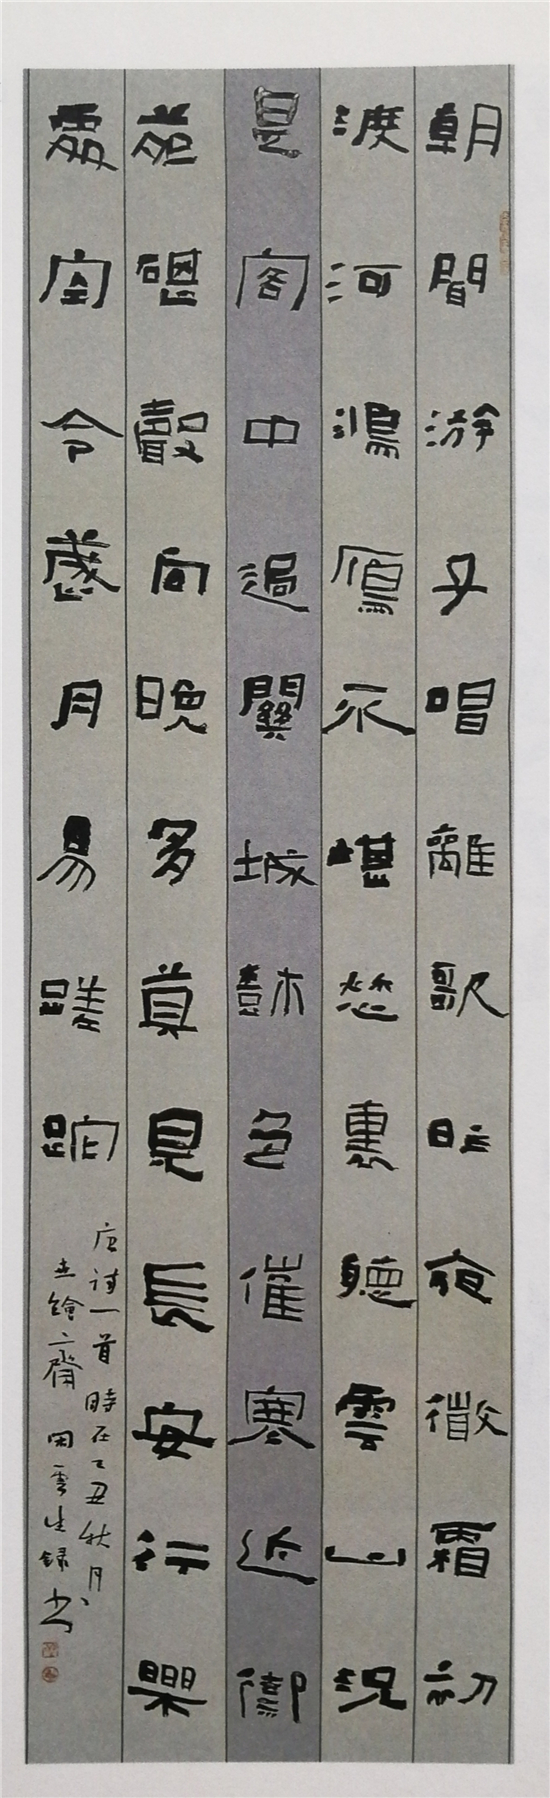 朝聞游子唱離歌昨夜微霜初
渡河鴻雁不堪愁裏聽雲山況
是客中過關城樹色催寒近御
苑碪聲向晚多莫見長安行樂
處空令歲月易蹉跎
唐詩一首時在乙丑秋月
齋閑雲生書